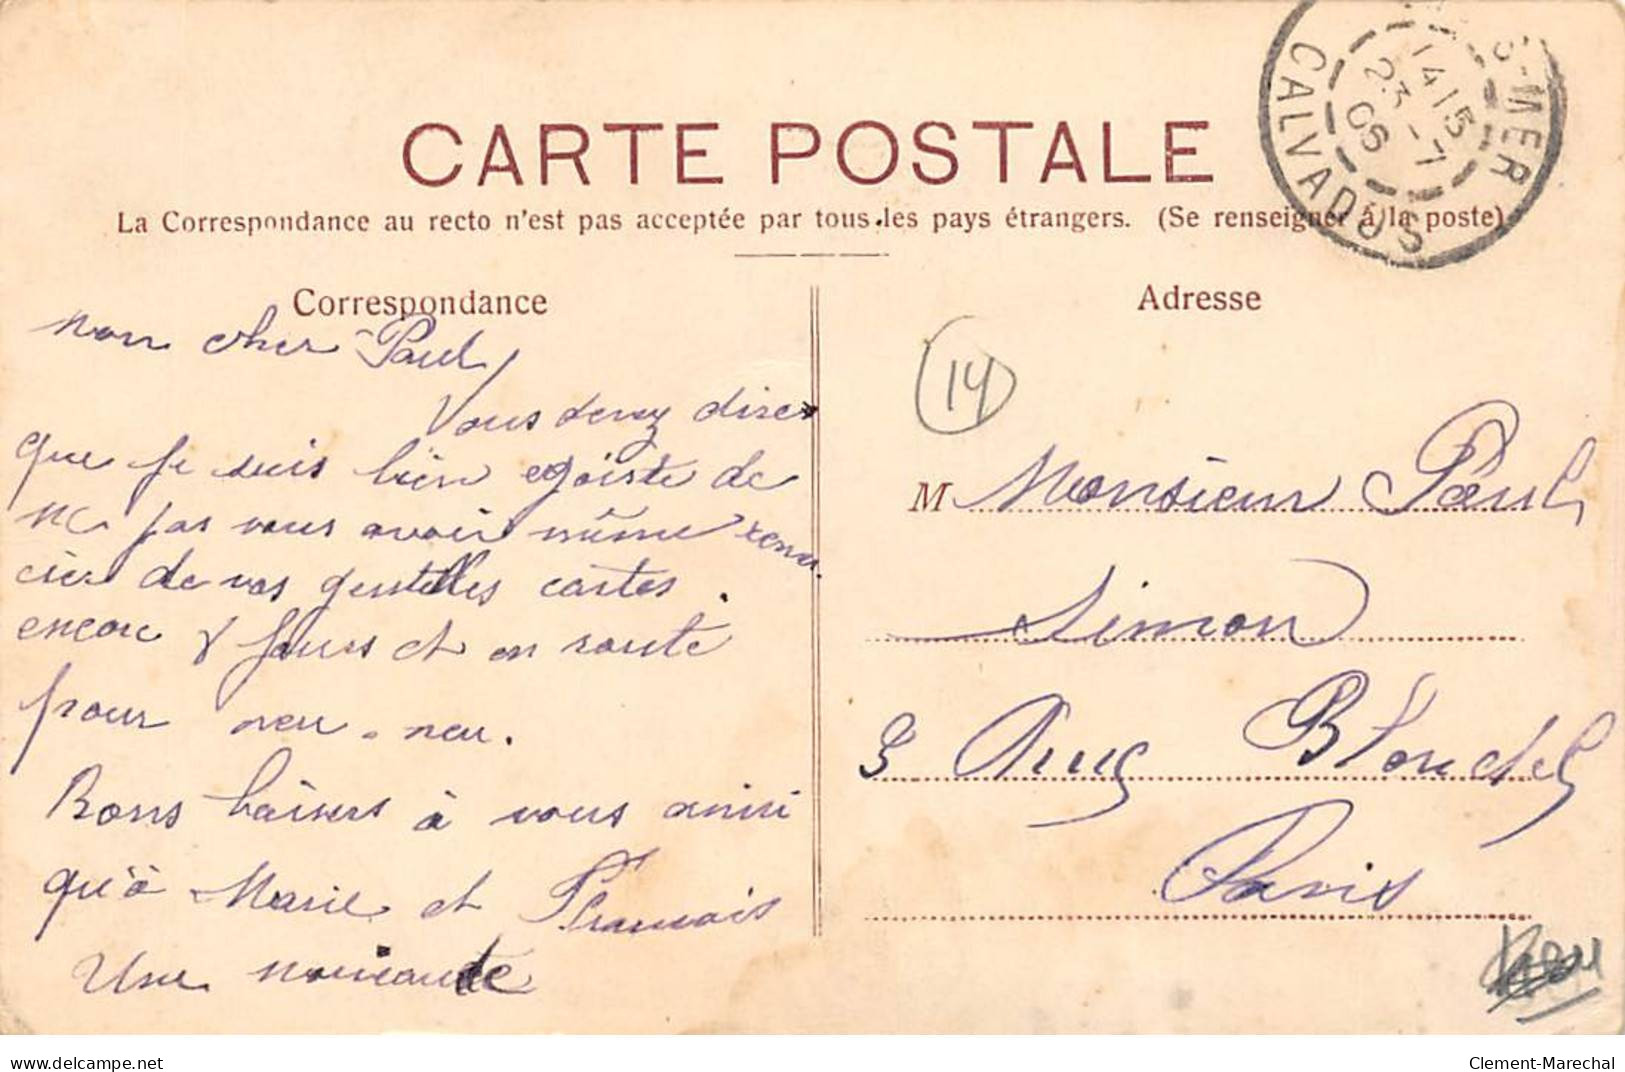 CARTE POSTALE
La Correspondance au recto n'est pas acceptée par tous les pays étrangers. (Se renseigner à la poste)
-MER
CALVADOS
1415
23 -7
06
Correspondance
mon cher Paul
Vous devez dire
que je suis bien egoiste de
ne pas vous avoir même remer
cier de vos gentilles cartes.
encore 8 jours et en route
pour neu-neu.
Bons baisers à vous ainsi
qu'à Marie et François
Une
Adresse
14
M Monsieur Paul
Simon
3 Rue Blondel
Paris
delcampe.net
Clement-Marechal